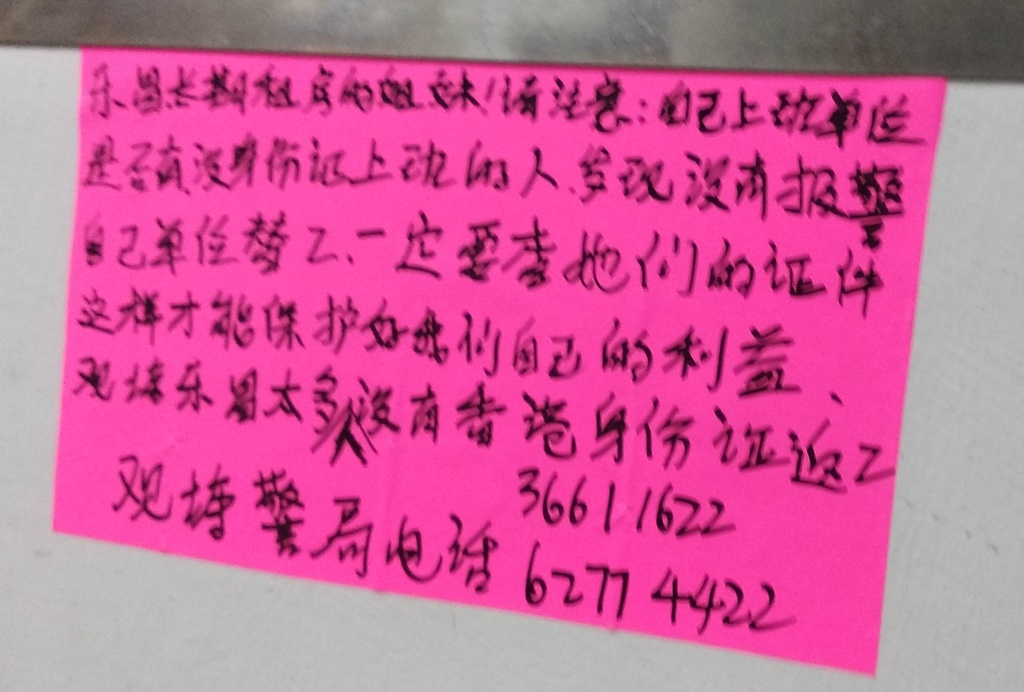 乐昌长期租房的姐妹！请注意：自己上班单位
是否有没身份证上班的人、发现没有报警
自己单位替工、一定要查她们的证件
这样才能保护好我们自己的利益、
观塘乐昌太多人没有香港身份证返工
观塘警局电话 36611622
62774422